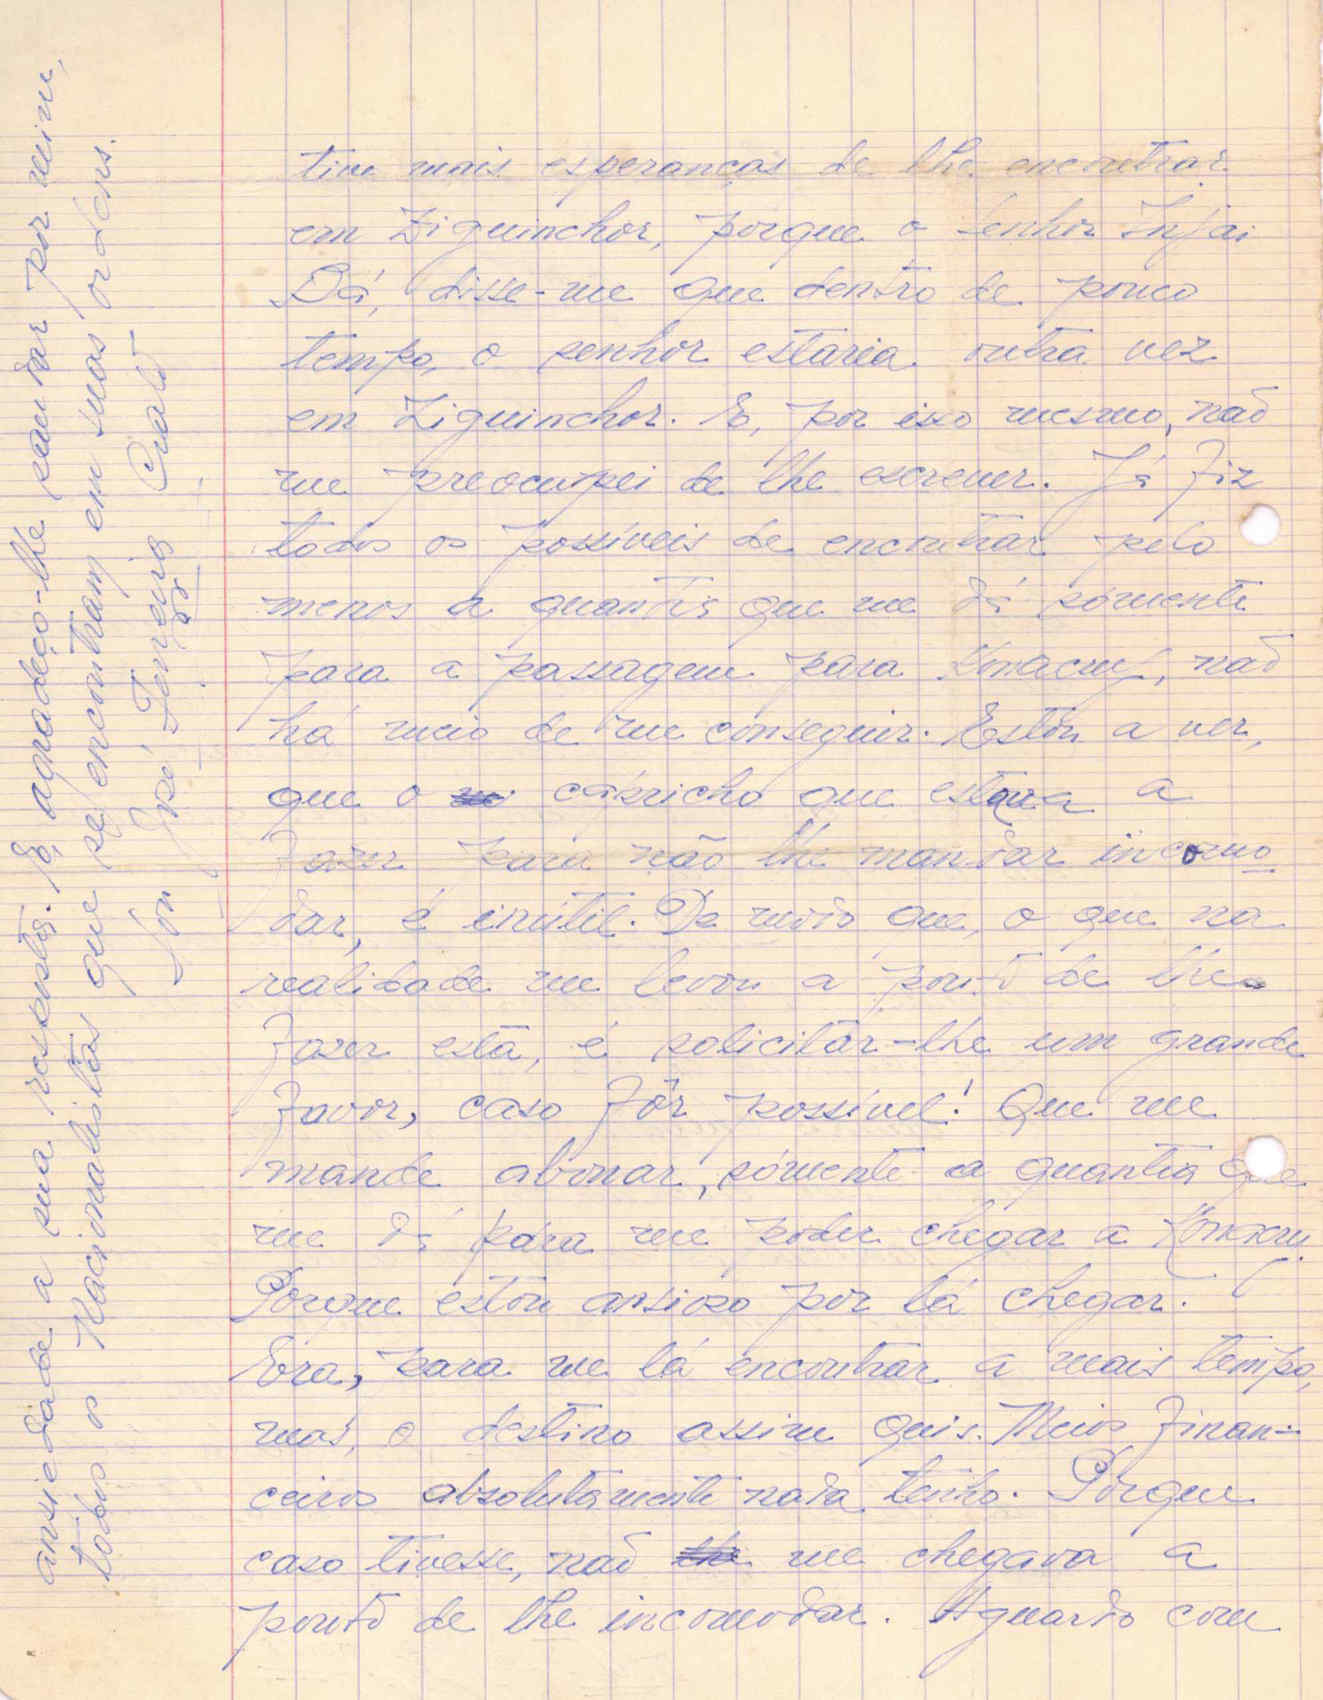 tive mais esperanças de lhe encontrar
em Ziguinchor, porque o senhor Injai
Bá, disse-me que dentro de pouco
tempo, o senhor estaria outra vez
em Ziguinchor. E, por isso mesmo, não
me preocupei de lhe escrever. Já fiz
todos os possíveis de encontrar pelo
menos a quantia que me dá sómente
para a passagem para Konacry, não
há meio de me conseguir. Estou a ver,
que o capricho que estava a
fazer para não lhe mandar incomo
dar, é inútil. De modo que, o que na
realidade me levou a ponto de lhe
fazer esta, é solicitar-lhe um grande
favor, caso fôr possivel! Que me
mande abonar, sómente a quantia que
me dá para me poder chegar a Konacry.
Porque estou ansioso por lá chegar.
Era, para me lá encontrar a mais tempo,
mas, o destino assim quis. Meios finan-
ceiros absolutamente nada tenho. Porque
caso tivesse, não me chegava a
ponto de lhe incomodar. Aguardo com
ansiedade a sua resposta. E, agradeço-lhe saudar por mim,
todos os Nacionalistas que se encontram em suas ordens.
Sou José Ferreira